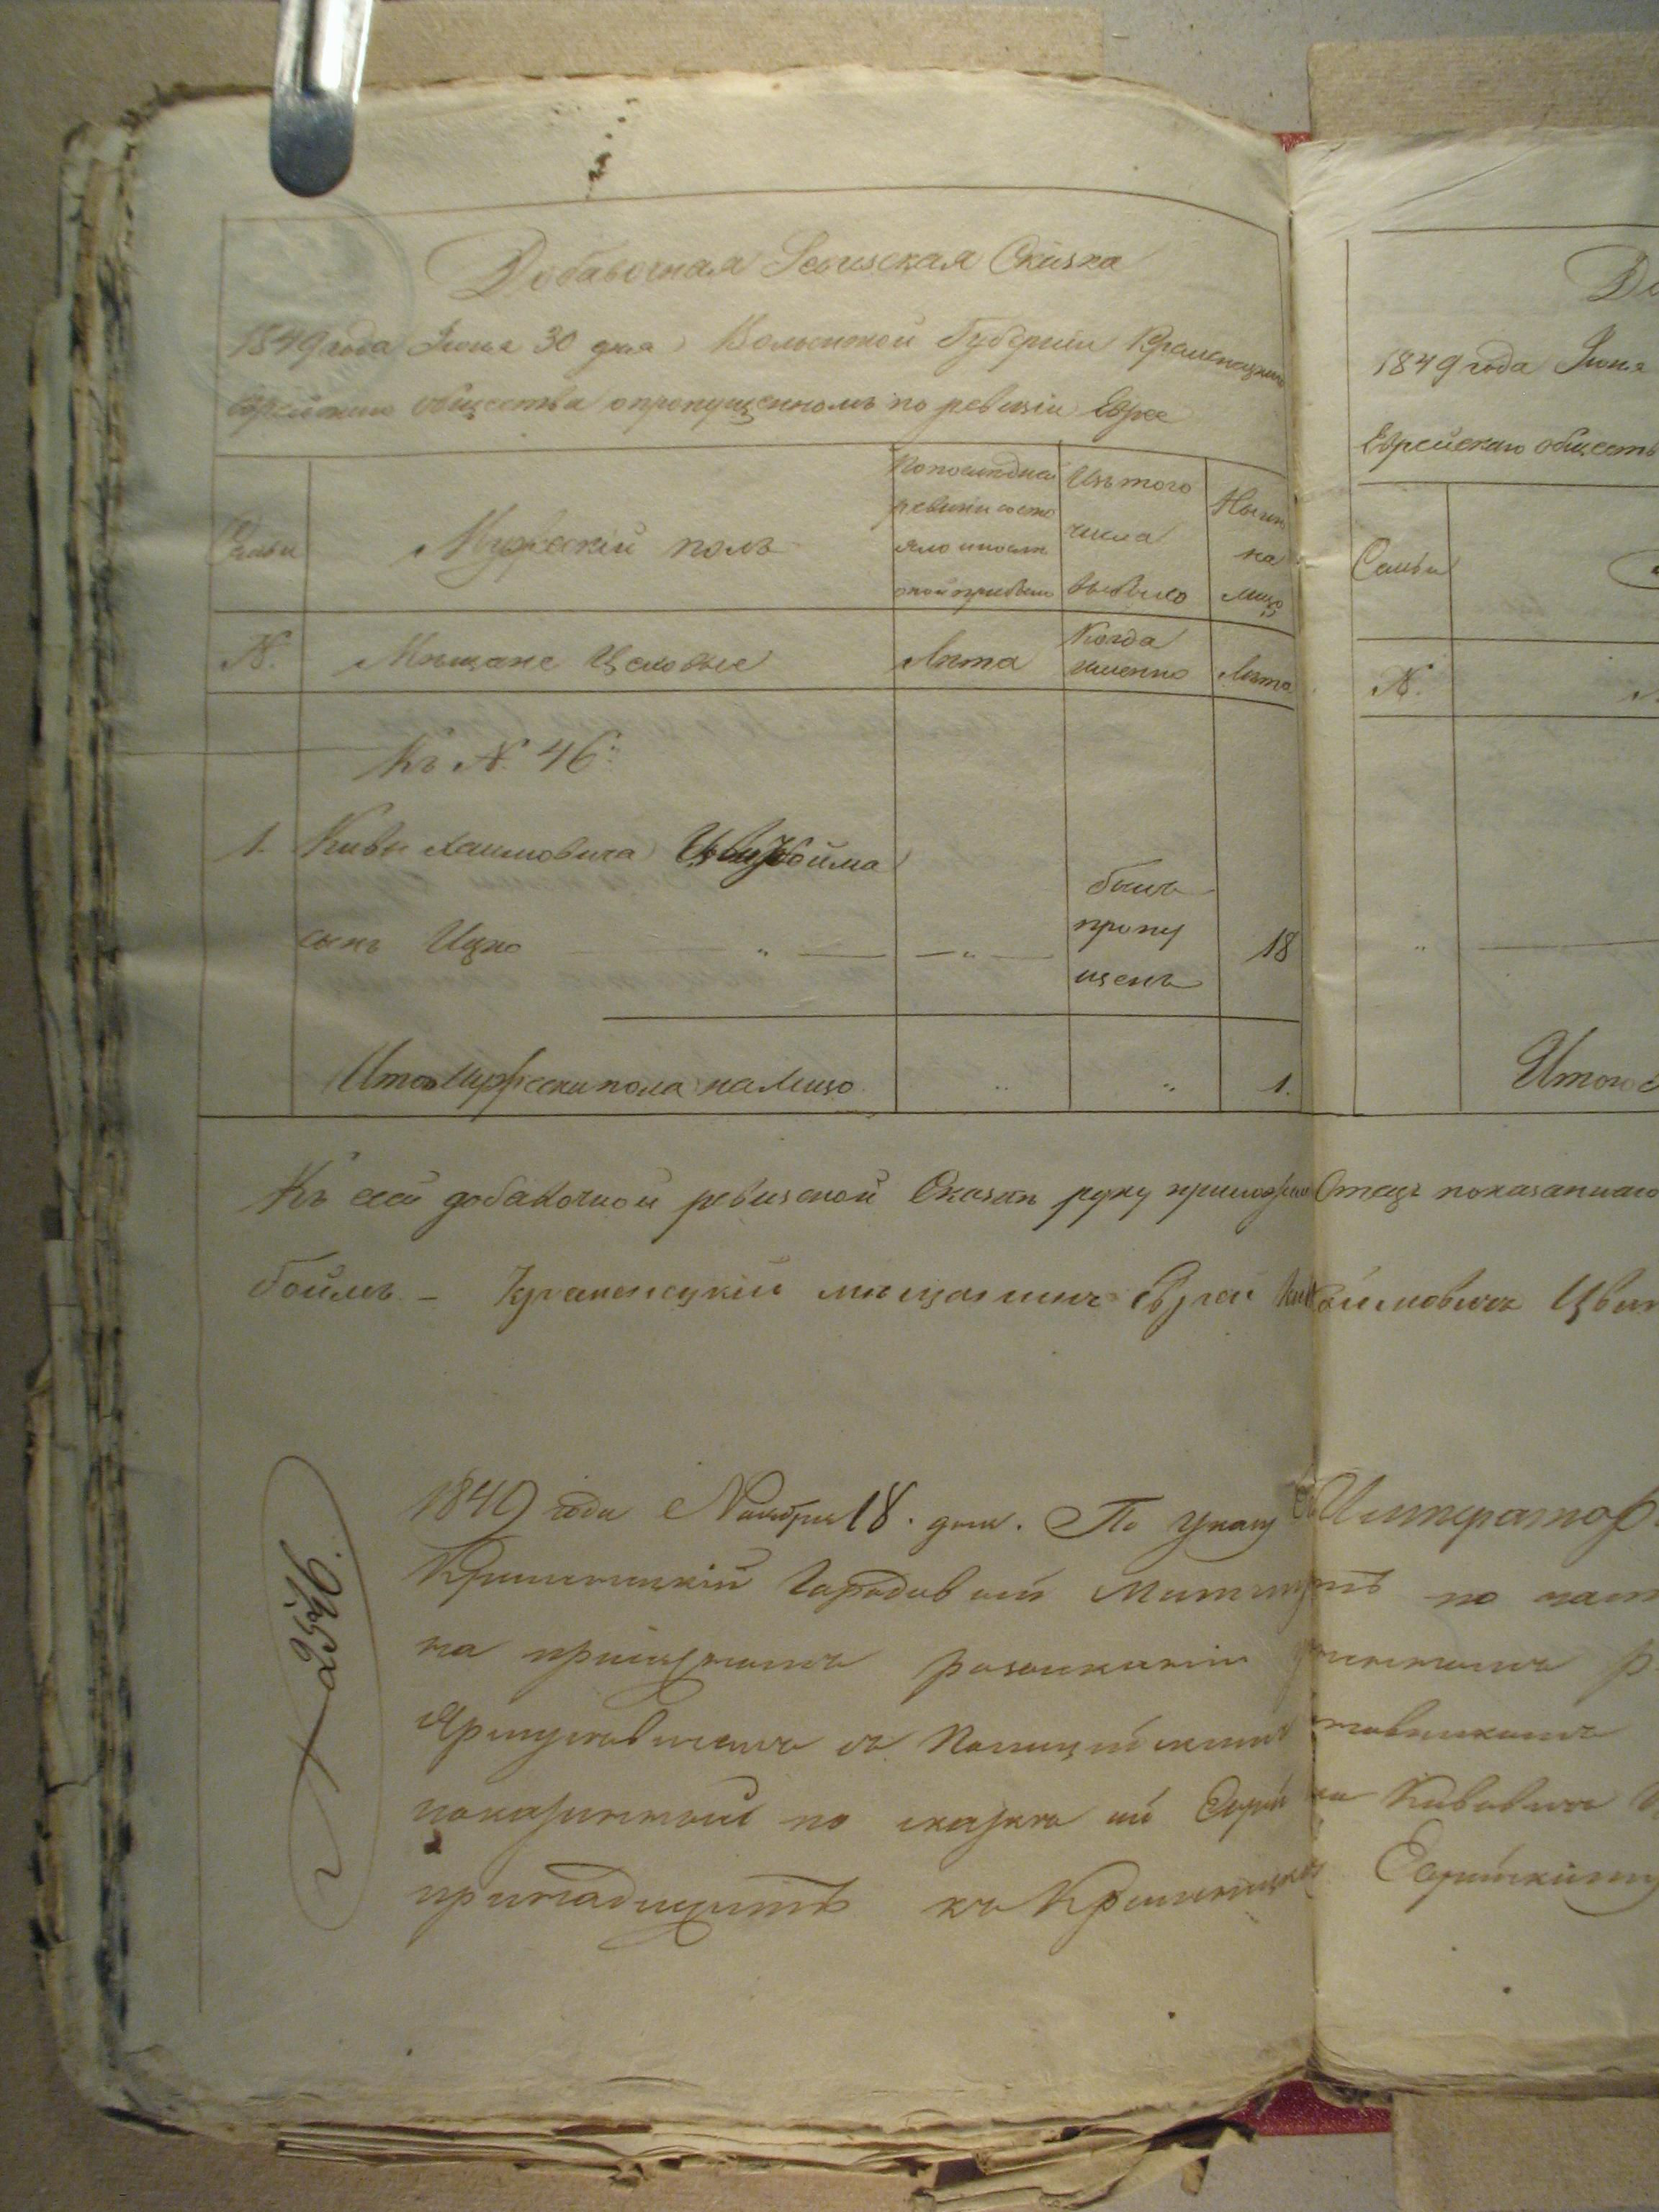 Добавочная Ревизская Сказка
1849 года Июня 30 дня Волынской Губернии Кременецкаго
Еврейскаго общества о пропущенномъ по ревизіи Еврее
Семьи
Мужескій полъ
По последней
ревизіи состо
яло и после
оной прибыло
Изъ того
числа
выбыло
Ныне
на
лицо
N.
Мещане Цеховые
Лета
Когда
именно
Лета
Къ N. 46:
1. Кивы Хаимовича Цвикбойма
сынъ Ицко — „ — — „ —
былъ
пропу
щенъ
18
Итого Мужеска пола на лицо „ „ 1.
Къ сей добавочной ревизской Сказке руку приложилъ Отецъ показаннаго
боймъ – Кременецкій мещанинъ Еврей Хаимовичъ
2546.
1849 года Ноября 18. дня. По указу Император
Кременецкій Городовой Магистратъ по
на
съ Полицейскимъ
показанный по сказке сей Еврей Кивовичъ
принадлежитъ къ Кременецкому Еврейскому
До
1849 года Июня
Еврейскаго общест
Семьи
N.
Итого